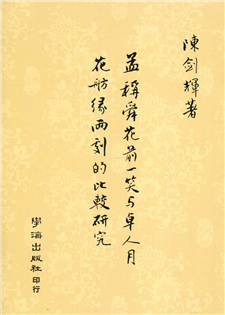 陳剑輝著
孟稱舜花前一笑与卓人月
花舫缘兩剧的比較研究
學海出版社印行